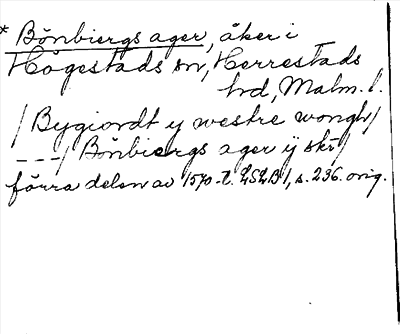 * Bönbiergs ager, åker i
Högestads sn, Herrestads
hrd, Malm. l.
/ Bygiordt y westre wongh /
---/ Bönbiergs ager ÿ skr /
förra delen av 1570-t. LSLB 1, s. 236. orig.